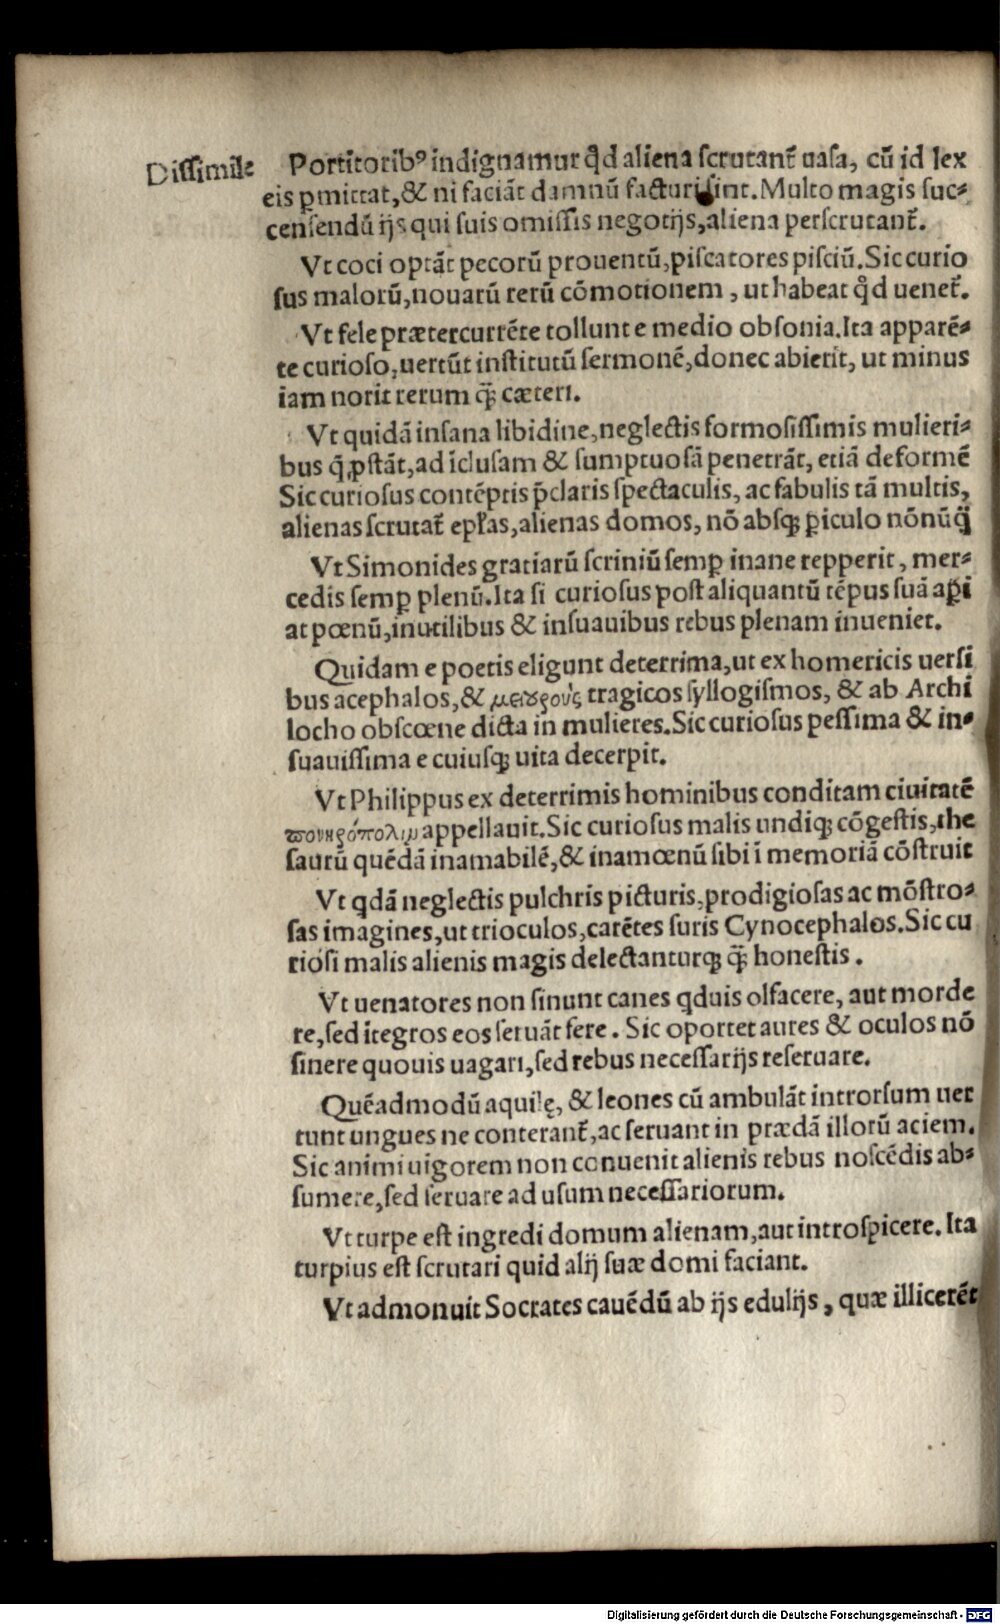 Dissimile
Portitorib⁹ indignamur qd̕ aliena scrutant᷑ uasa, cũ id lex
eis ꝑmittat, & ni faciãt damnũ facturi sint. Multo magis suc⸗
censendũ ijs qui suis omissis negotijs, aliena perscrutant᷑.
Vt coci optãt pecorũ prouentũ, piscatores pisciũ. Sic curio
sus malorũ, nouarũ rerũ cõmotionem, ut habeat qd̕ uenet᷑.
Vt fele prætercurrẽte tollunt e medio obsonia. Ita apparẽ⸗
te curioso, uertũt institutũ sermonẽ, donec abierit, ut minus
iam norit rerum q̃ȝ cæteri.
Vt quidã insana libidine, neglectis formosissimis mulieri⸗
bus q̃ ꝓstãt, ad ĩclusam & sumptuosã penetrãt, etiã deformẽ
Sic curiosus contẽptis p̃claris spectaculis, ac fabulis tã multis,
alienas scrutat᷑ epl̃as, alienas domos, nõ absqȝ ꝑiculo nõnũq̃ȝ
Vt Simonides gratiarũ scriniũ semꝑ inane repperit, mer⸗
cedis semꝑ plenũ. Ita si curiosus post aliquantũ tẽpus suã aꝑi
at pœnũ, inutilibus & insuauibus rebus plenam inueniet.
Quidam e poetis eligunt deterrima, ut ex homericis uersi
bus acephalos, & μειούρους tragicos syllogismos, & ab Archi
locho obscœne dicta in mulieres. Sic curiosus pessima & in⸗
suauissima e cuiusqȝ uita decerpit.
Vt Philippus ex deterrimis hominibus conditam ciuitatẽ
πονηρόπολιμ appellauit. Sic curiosus malis undiqȝ cõgestis, the
saurũ quẽdã inamabilẽ, & inamœnũ sibi ĩ memoriã cõstruit
Vt qdã neglectis pulchris picturis, prodigiosas ac mõstro⸗
sas imagines, ut trioculos, carẽtes suris Cynocephalos. Sic cu
riosi malis alienis magis delectanturqȝ q̃ȝ honestis.
Vt uenatores non sinunt canes qduis olfacere, aut morde
re, sed ĩtegros eos seruãt fere. Sic oportet aures & oculos nõ
sinere quouis uagari, sed rebus necessarijs reseruare.
Quẽadmodũ aquilę, & leones cũ ambulãt introrsum uer
tunt ungues ne conterant᷑, ac seruant in prædã illorũ aciem.
Sic animi uigorem non conuenit alienis rebus noscẽdis ab⸗
sumere, sed seruare ad usum necessariorum.
Vt turpe est ingredi domum alienam, aut introspicere. Ita
turpius est scrutari quid alij suæ domi faciant.
Vt admonuit Socrates cauẽdũ ab ijs edulijs, quæ illicerẽt
Digitalisierung gefördert durch die Deutsche Forschungsgemeinschaft - DFG